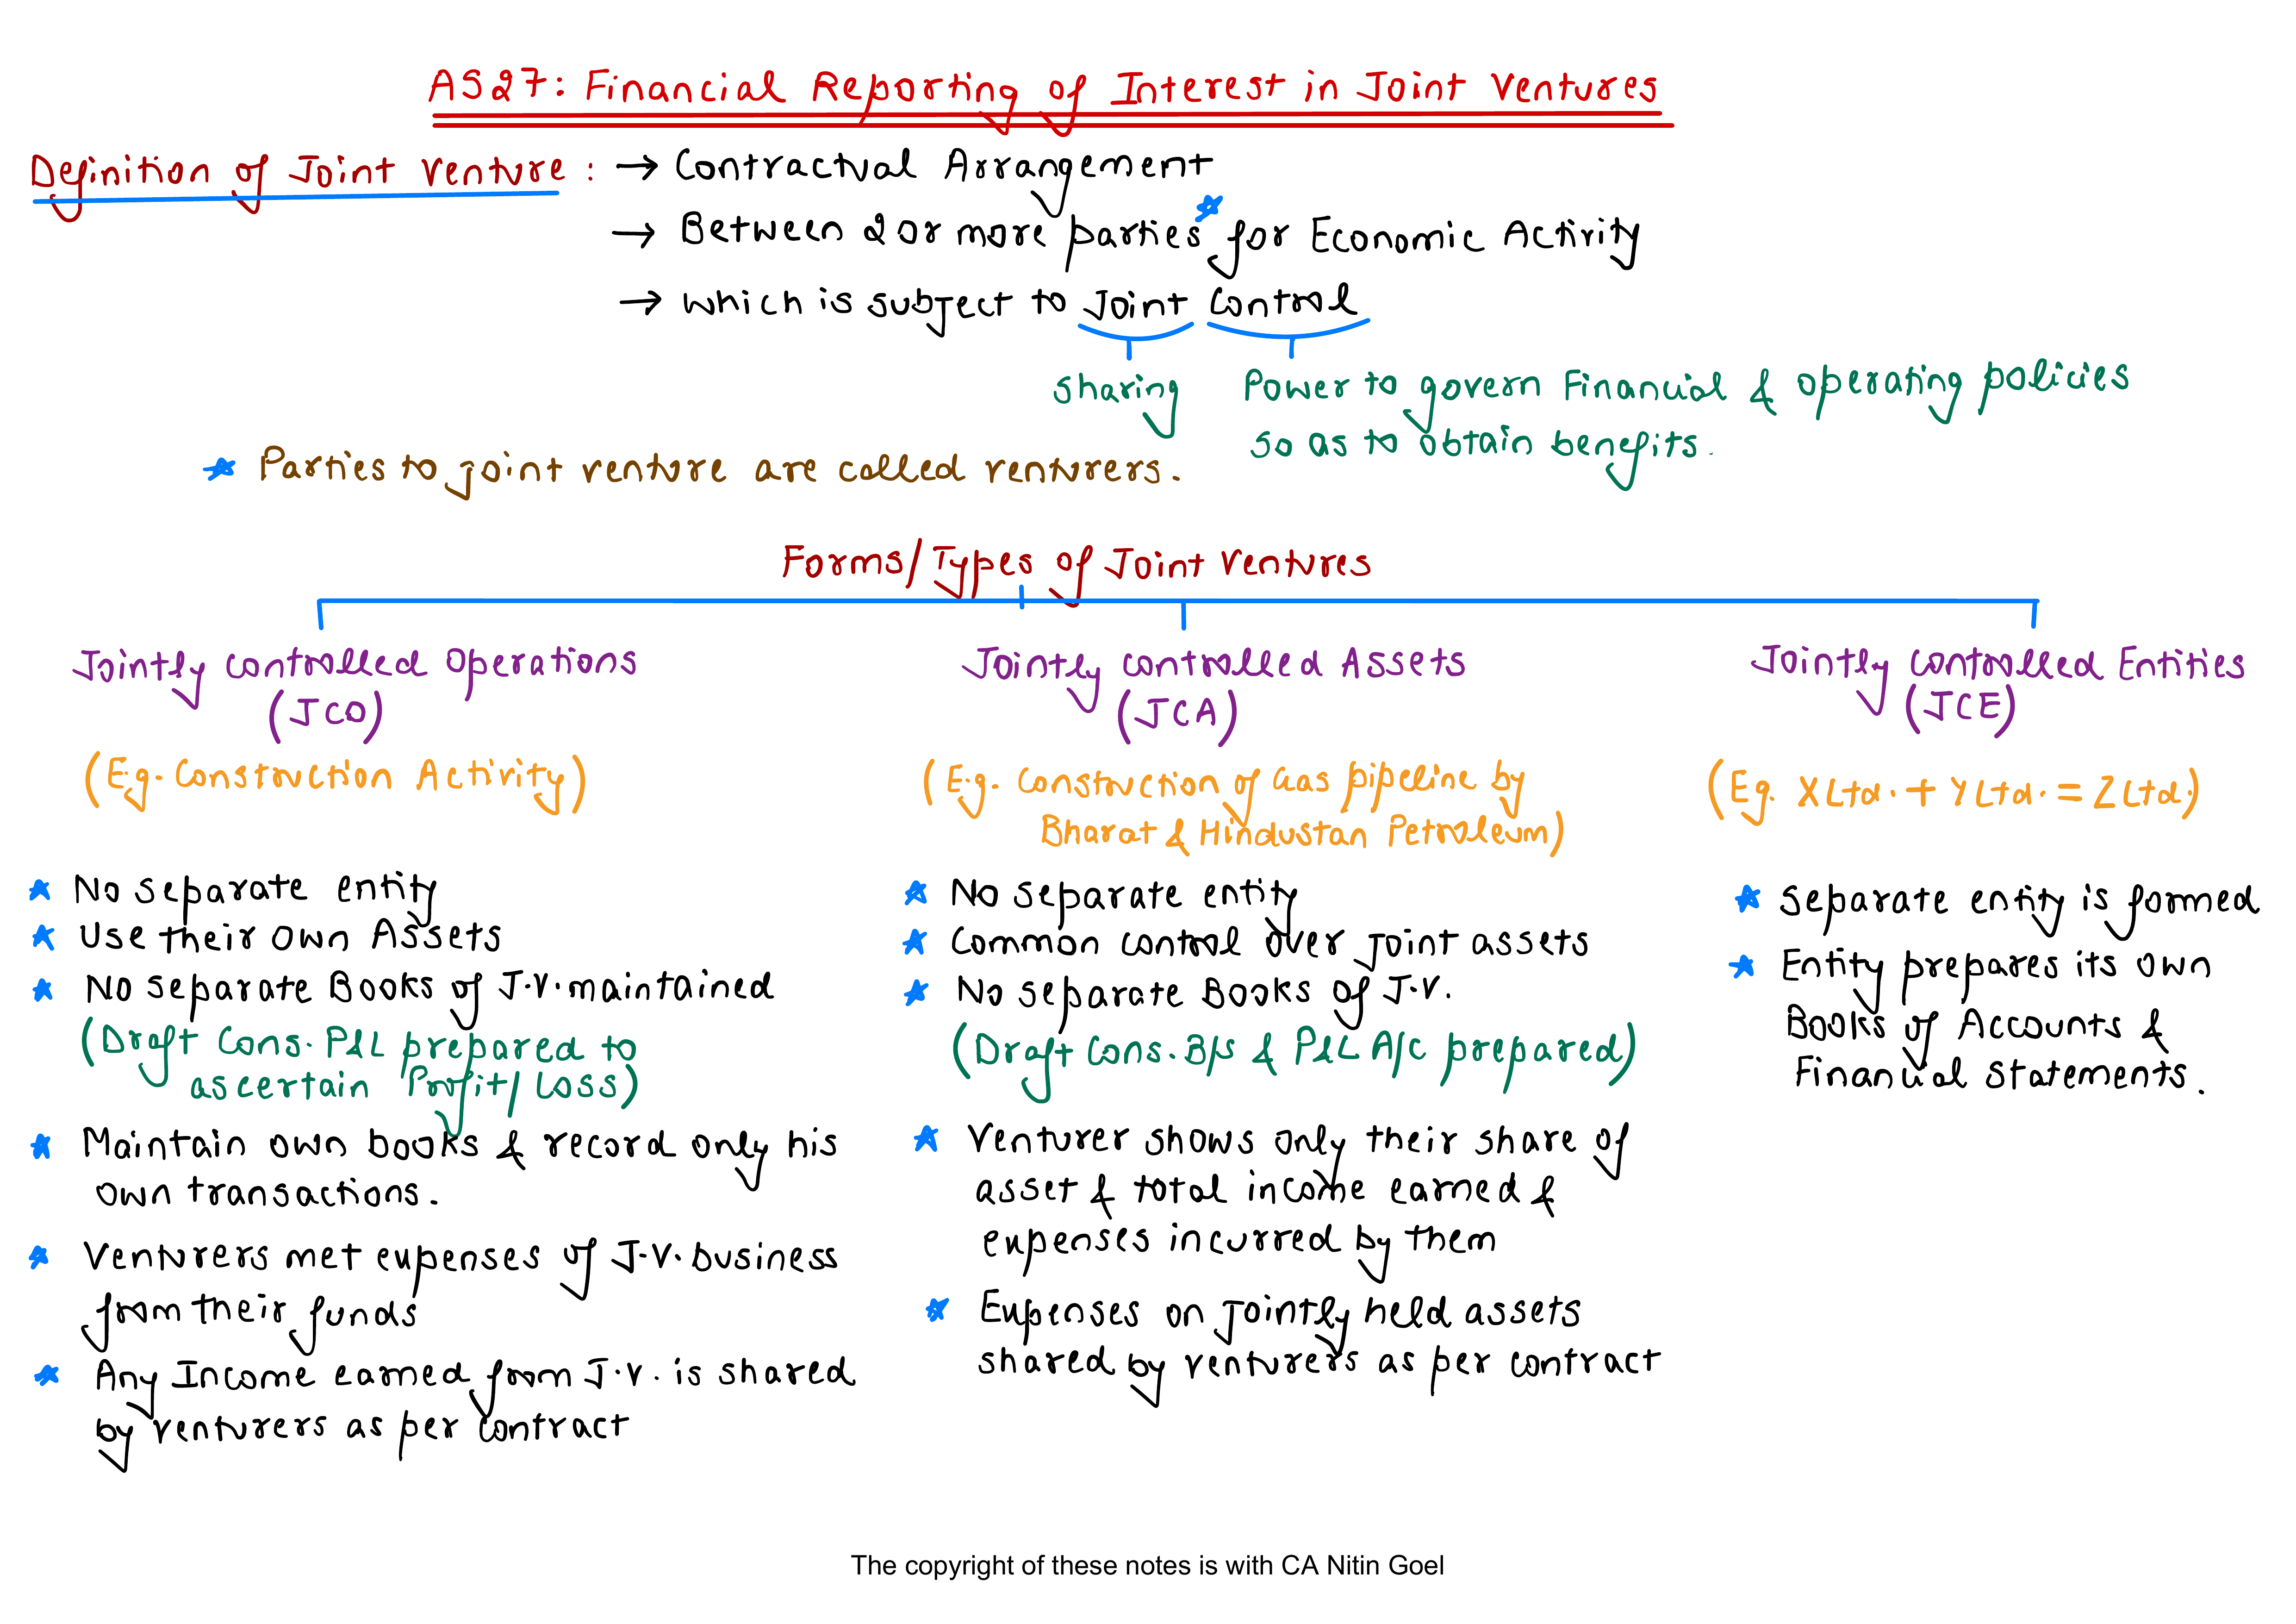 AS27: Financial Reporting of Interest in Joint Ventures
Definition of Joint Venture : → Contractual Arrangement
→ Between 2 or more parties* for Economic Activity
→ which is subject to Joint Control
sharing
Power to govern Financial & operating policies
so as to obtain benefits.
* Parties to joint venture are called venturers.
Forms/Types of Joint Ventures
Jointly controlled Operations
(JCO)
(E.g. Construction Activity)
* No separate entity
* Use their own Assets
* No separate Books of J.V. maintained
(Draft Cons. P&L prepared to
ascertain Profit/Loss)
* Maintain own books & record only his
own transactions.
* Venturers met expenses of J.V. business
from their funds
* Any Income earned from J.V. is shared
by venturers as per contract
Jointly controlled Assets
(JCA)
(E.g. Construction of Gas pipeline by
Bharat & Hindustan Petroleum)
* No separate entity
* Common control over joint assets
* No separate Books of J.V.
(Draft Cons. B/S & P&L A/c prepared)
* Venturer shows only their share of
asset & total income earned &
expenses incurred by them
* Expenses on jointly held assets
shared by venturers as per contract
Jointly controlled Entities
(JCE)
(Eg. X Ltd. + Y Ltd. = Z Ltd.)
* Separate entity is formed
* Entity prepares its own
Books of Accounts &
Financial Statements.
The copyright of these notes is with CA Nitin Goel